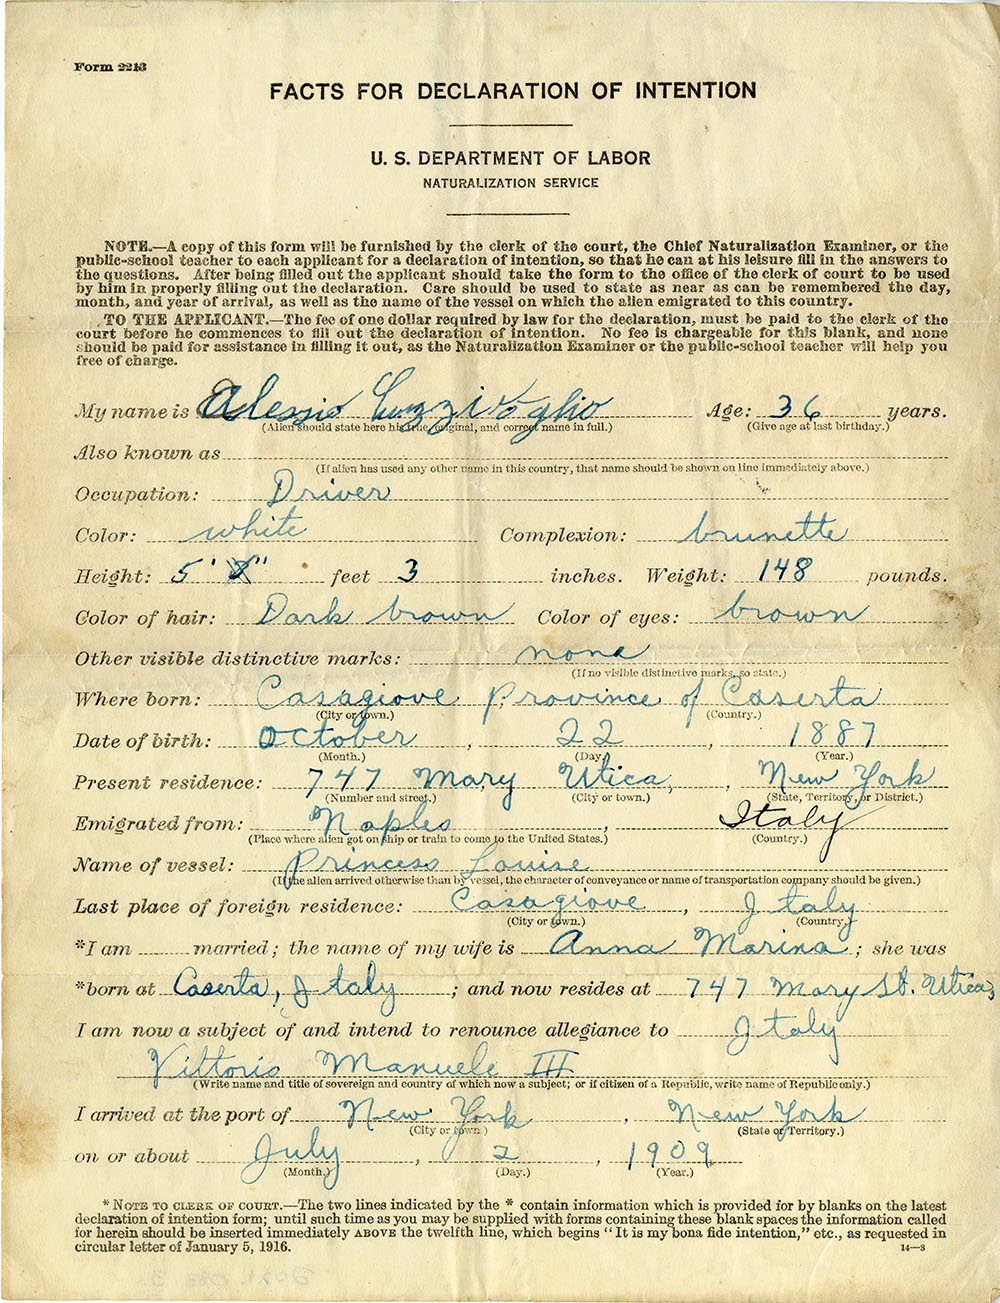 Form 2213
FACTS FOR DECLARATION OF INTENTION
U. S. DEPARTMENT OF LABOR
NATURALIZATION SERVICE
NOTE.—A copy of this form will be furnished by the clerk of the court, the Chief Naturalization Examiner, or the
public-school teacher to each applicant for a declaration of intention, so that he can at his leisure fill in the answers to
the questions. After being filled out the applicant should take the form to the office of the clerk of court to be used
by him in properly filling out the declaration. Care should be used to state as near as can be remembered the day,
month, and year of arrival, as well as the name of the vessel on which the alien emigrated to this country.
TO THE APPLICANT.—The fee of one dollar required by law for the declaration, must be paid to the clerk of the
court before he commences to fill out the declaration of intention. No fee is chargeable for this blank, and none
should be paid for assistance in filling it out, as the Naturalization Examiner or the public-school teacher will help you
free of charge.
My name is Alessio Luzzivoglio Age: 36 years.
(Alien should state here his true, original, and correct name in full.) (Give age at last birthday.)
Also known as
(If alien has used any other name in this country, that name should be shown on line immediately above.)
Occupation: Driver
Color: white Complexion: brunette
Height: 5' feet 3 inches. Weight: 148 pounds.
Color of hair: Dark brown Color of eyes: brown
Other visible distinctive marks: none
(If no visible distinctive marks, so state.)
Where born: Casagiove Province of Caserta
(City or town.) (Country.)
Date of birth: October, 22, 1887
(Month.) (Day.) (Year.)
Present residence: 747 Mary Utica, New York
(Number and street.) (City or town.) (State, Territory, or District.)
Emigrated from: Naples, Italy
(Place where alien got on ship or train to come to the United States.) (Country.)
Name of vessel: Princess Louise
(If the alien arrived otherwise than by vessel, the character of conveyance or name of transportation company should be given.)
Last place of foreign residence: Casagiove, Italy
(City or town.) (Country.)
*I am married; the name of my wife is Anna Marina; she was
*born at Caserta, Italy; and now resides at 747 Mary St. Utica,
I am now a subject of and intend to renounce allegiance to Italy
Vittorio Manuele III
(Write name and title of sovereign and country of which now a subject; or if citizen of a Republic, write name of Republic only.)
I arrived at the port of New York, New York
(City or town.) (State or Territory.)
on or about July, 2, 1909
(Month.) (Day.) (Year.)
* NOTE TO CLERK OF COURT.—The two lines indicated by the * contain information which is provided for by blanks on the latest
declaration of intention form; until such time as you may be supplied with forms containing these blank spaces the information called
for herein should be inserted immediately ABOVE the twelfth line, which begins "It is my bona fide intention," etc., as requested in
circular letter of January 5, 1916.
14—3